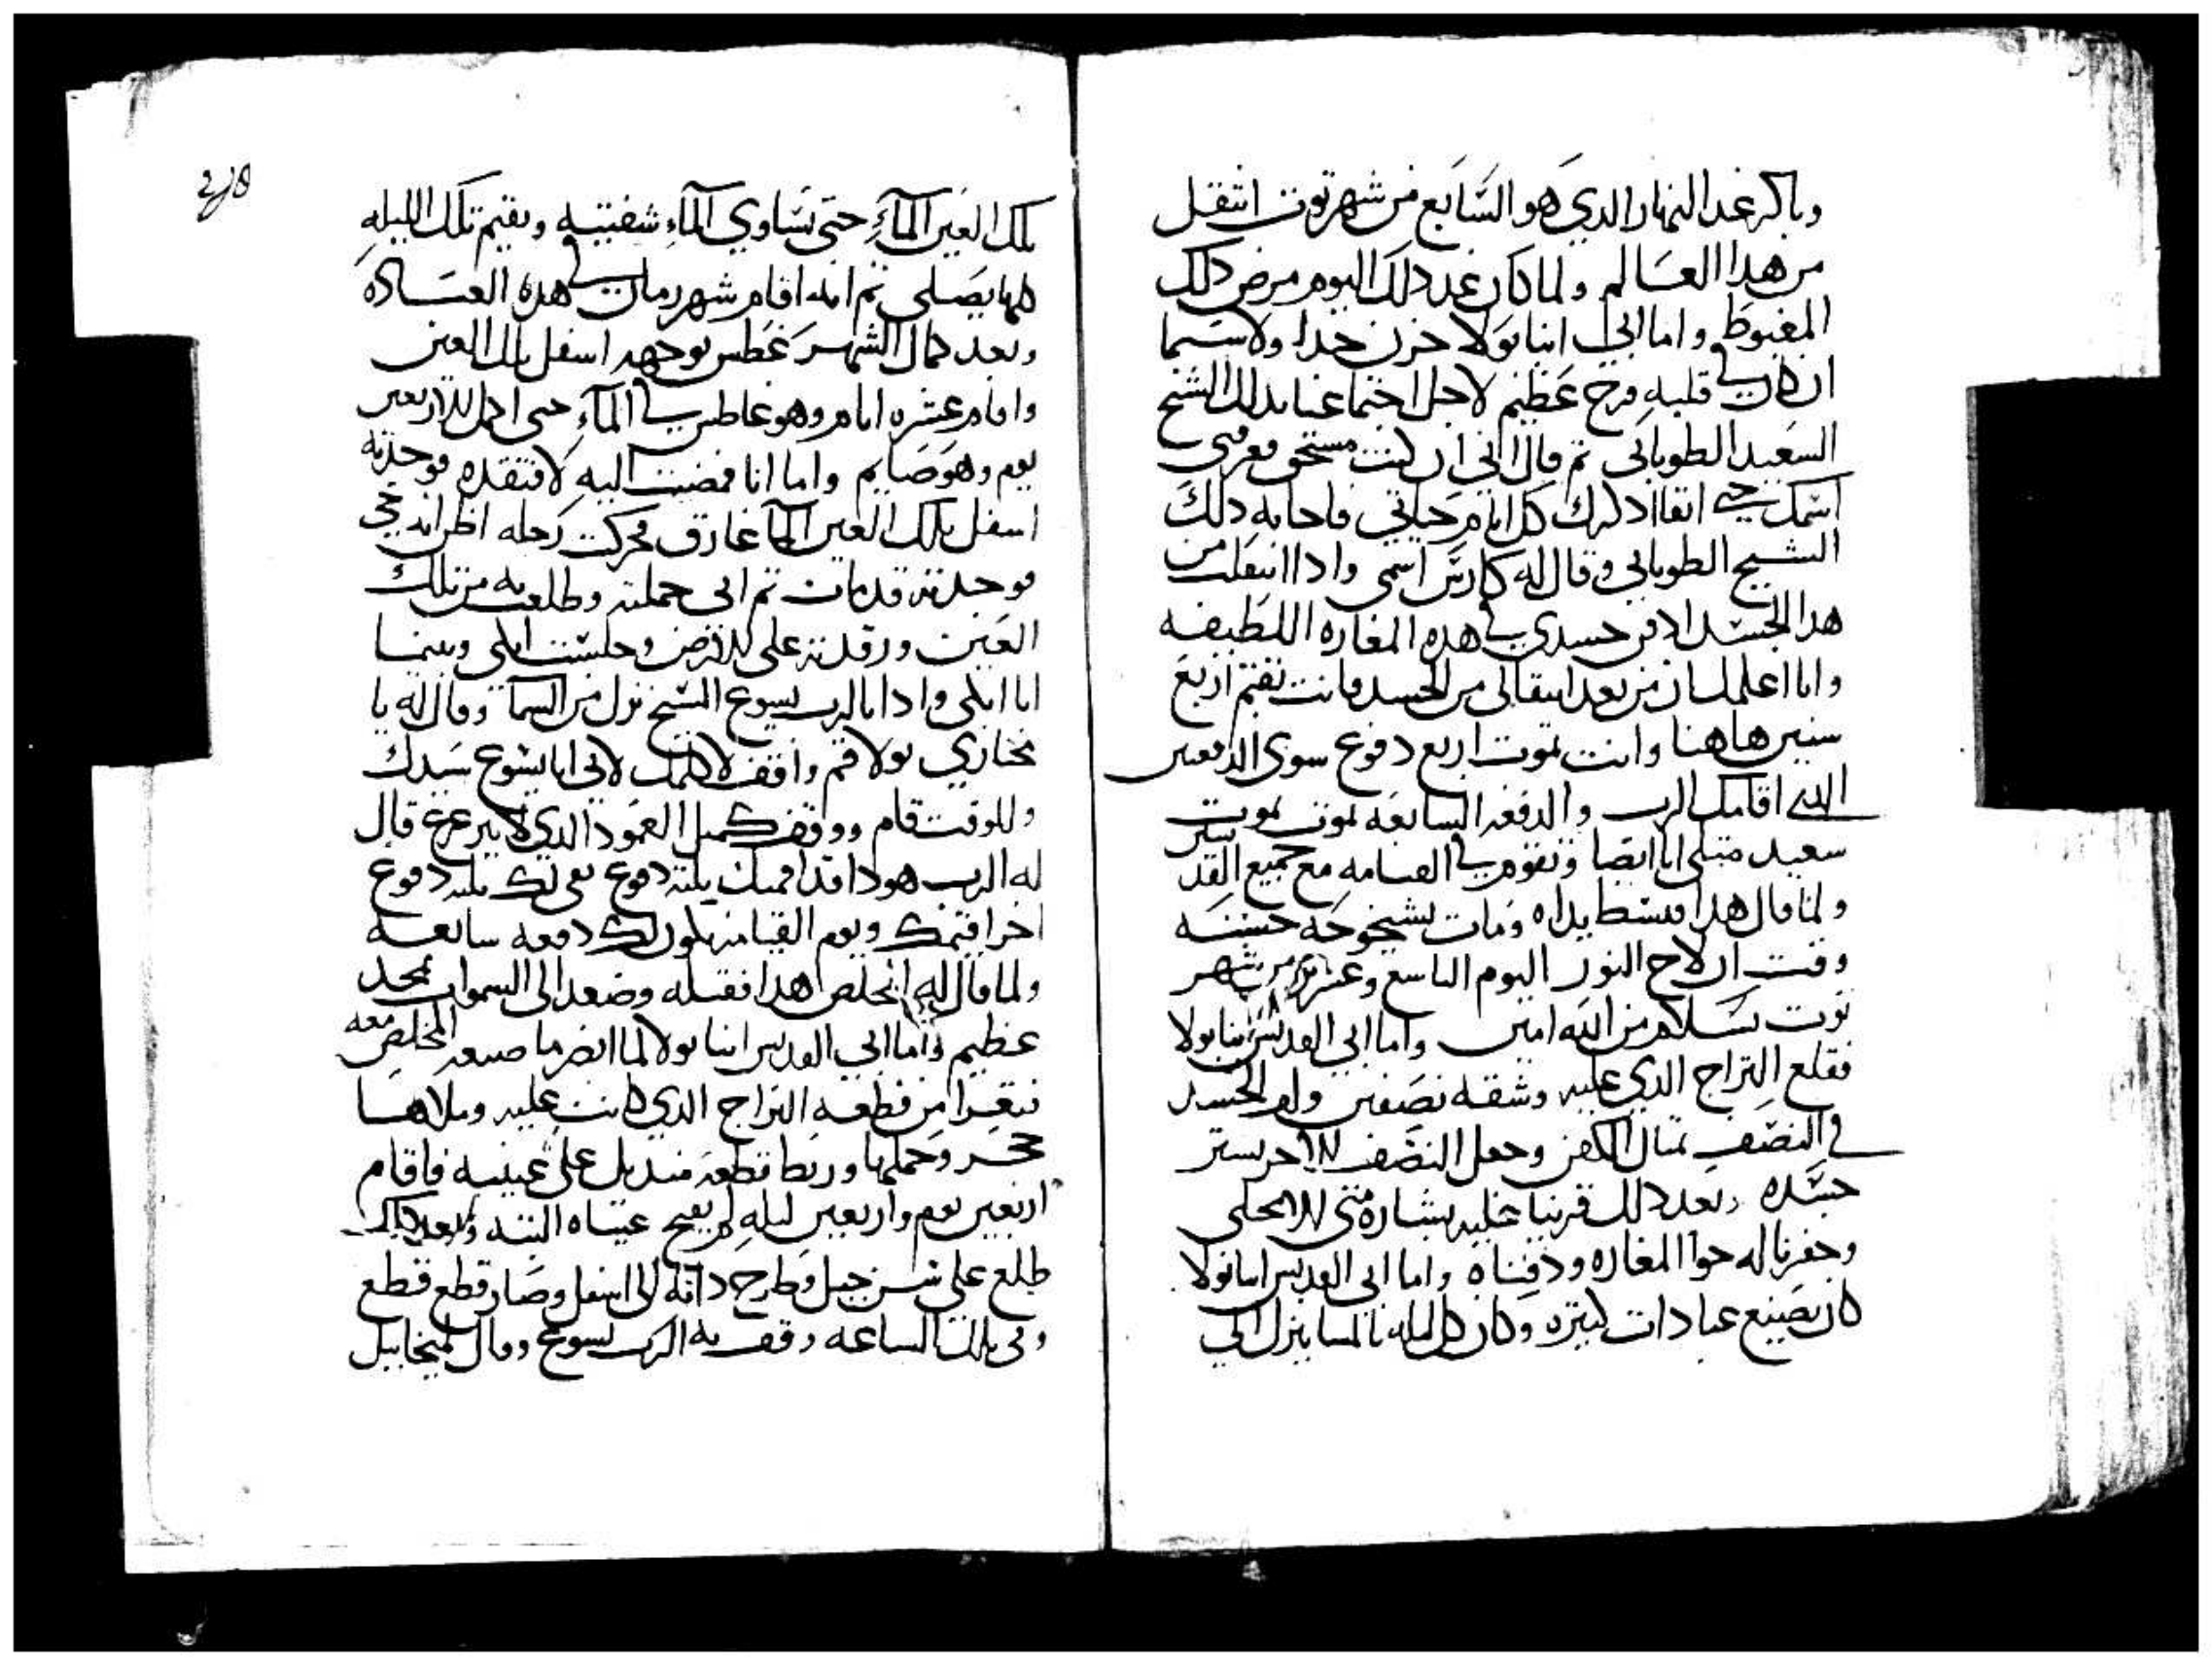 وباكر غد النهار الدي هو السَّابع من شهر توت انتقل
من هدا العَسالم ولما كان غد دلك اليوم مرض دلك
المغبوط واما ابي انبا بولا حزن جدا ولا سَيما
ان كان في قلبه فرح عَظيم لاجل اجتماعنا بدلك الشيخ
السَعيد الطوباني تم قال اني ان كنت مستحق فعرفني
اسَمك حتي انقا ادكرك كل ايام حَياتي فاجابه دلكَ
الشيخ الطوباني وقال له كارس اسَمي وادا انتقلت من
هدا الجسَد ادفن جسدي في هده المغاره اللطيفه
وانا اعلمك ان من بعد انتقالي من الجسد فانت تقيم اربع
سنين هاهنا وانت تموت اربع دفوع سوى الدفعتين
الدي اقامك الرب والدفعه السابعه تموت موت
سعيد متلي انا ايضا وتقوم في القيامه مع جميع القديسَين
ولما قال هدا فبسَط يداه ومات بشيخوخه حسَنه
وقت ان لاح النور اليوم التاسع وعشرين من شهر
توت بسَلام من الله امين واما ابي القديس انبا بولا
فقلع التراج الدي عليه وشقه نصَفين ولف الجسَد
في النصَف تمتال الكفن وجعل النصَف الاخر يستر
جسَده وبعد دلك قرينا عليه بشارة متي الانجيلي
وحفرنا له جوا المغاره ودفناه واما ابي القديس انبا بولا
كان يصَنع عبادات كتيره وكان كل ليله بالمسا ينزل الي
218
تلك العَين المآءِ حتي تسَاوي المآءِ شفتيه ويقيم تلك الليله
كلها يصَلي تم انه اقام شهر زمان في هده العبَساده
وبعد كمال الشهر غَطس بوجهه اسفل تلك العين
واقام عشره ايام وهو غاطس في المآءِ حتي اكمل الاربعين
يوم وهو صَايم واما انا فمضيت اليه لافتقده فوجدته
اسفل تلك العين المآ غارق فحركت رَجله اظن انه حي
فوجدته قد مات تم اني حملته وطلعت به من تلك
العَين ورقدته على الارض وجلسَت ابكي وبينما
انا ابكي وادا بالرب يسوع المسَيح نزل من السما وقال له يا
مختاري بولا قم واقف لاكلمك لاني انا يسَوع سَيدك
وللوقت قام ووقف كمتل العمود الدي لا يتزعزع قال
له الرب هودا قد اقمتك تلته دفوع بقي لك تلته دفوع
اخر اقيمك ويوم القيامه يكون لك دفعه سابعه
ولما قال له المخلص هدا فقبله وصَعد الى السموات بمجد
عظيم واما ابي القديس انبا بولا لما ابصر ما صنعه المخلص معه
من قطعه التراج الدي كانت عليه وملاهسا
حجر وحملها وربَط قطعه منديل على عينيه فاقام
اربعين يوم واربعين ليله لم يفتح عيناه البته وبعد دلك
طلع على شن جبل وطرح داته الى اسفل وصَار قطع قطع
وفي تلك الساعه وقف به الرب يسوع وقال لميخاييل